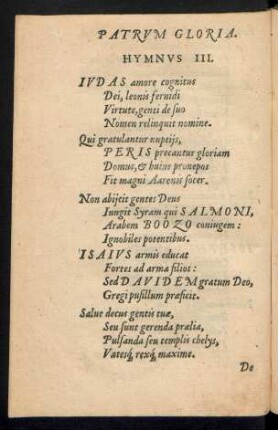 PATRVM GLORIA.
HYMNVS III.
IVDAS amore cognitus
Dei, leonis feruidi
Virtute, genti de suo
Nomen relinquit nomine.
Qui gratulantur nuptijs,
PERIS precantur gloriam
Domus, & huius pronepos
Fit magni Aaronis socer.
Non abijcit gentes Deus
Iungit Syram qui SALMONI,
Arabem BOOZO coniugem:
Ignobiles potentibus.
ISAIVS armis educat
Fortes ad arma filios:
Sed DAVIDEM gratum Deo,
Gregi pusillum præficit.
Salue decus gentis tuæ,
Seu sunt gerenda prælia,
Pulsanda seu templis chelys,
Vatesq́, rexq́, maxime.
De